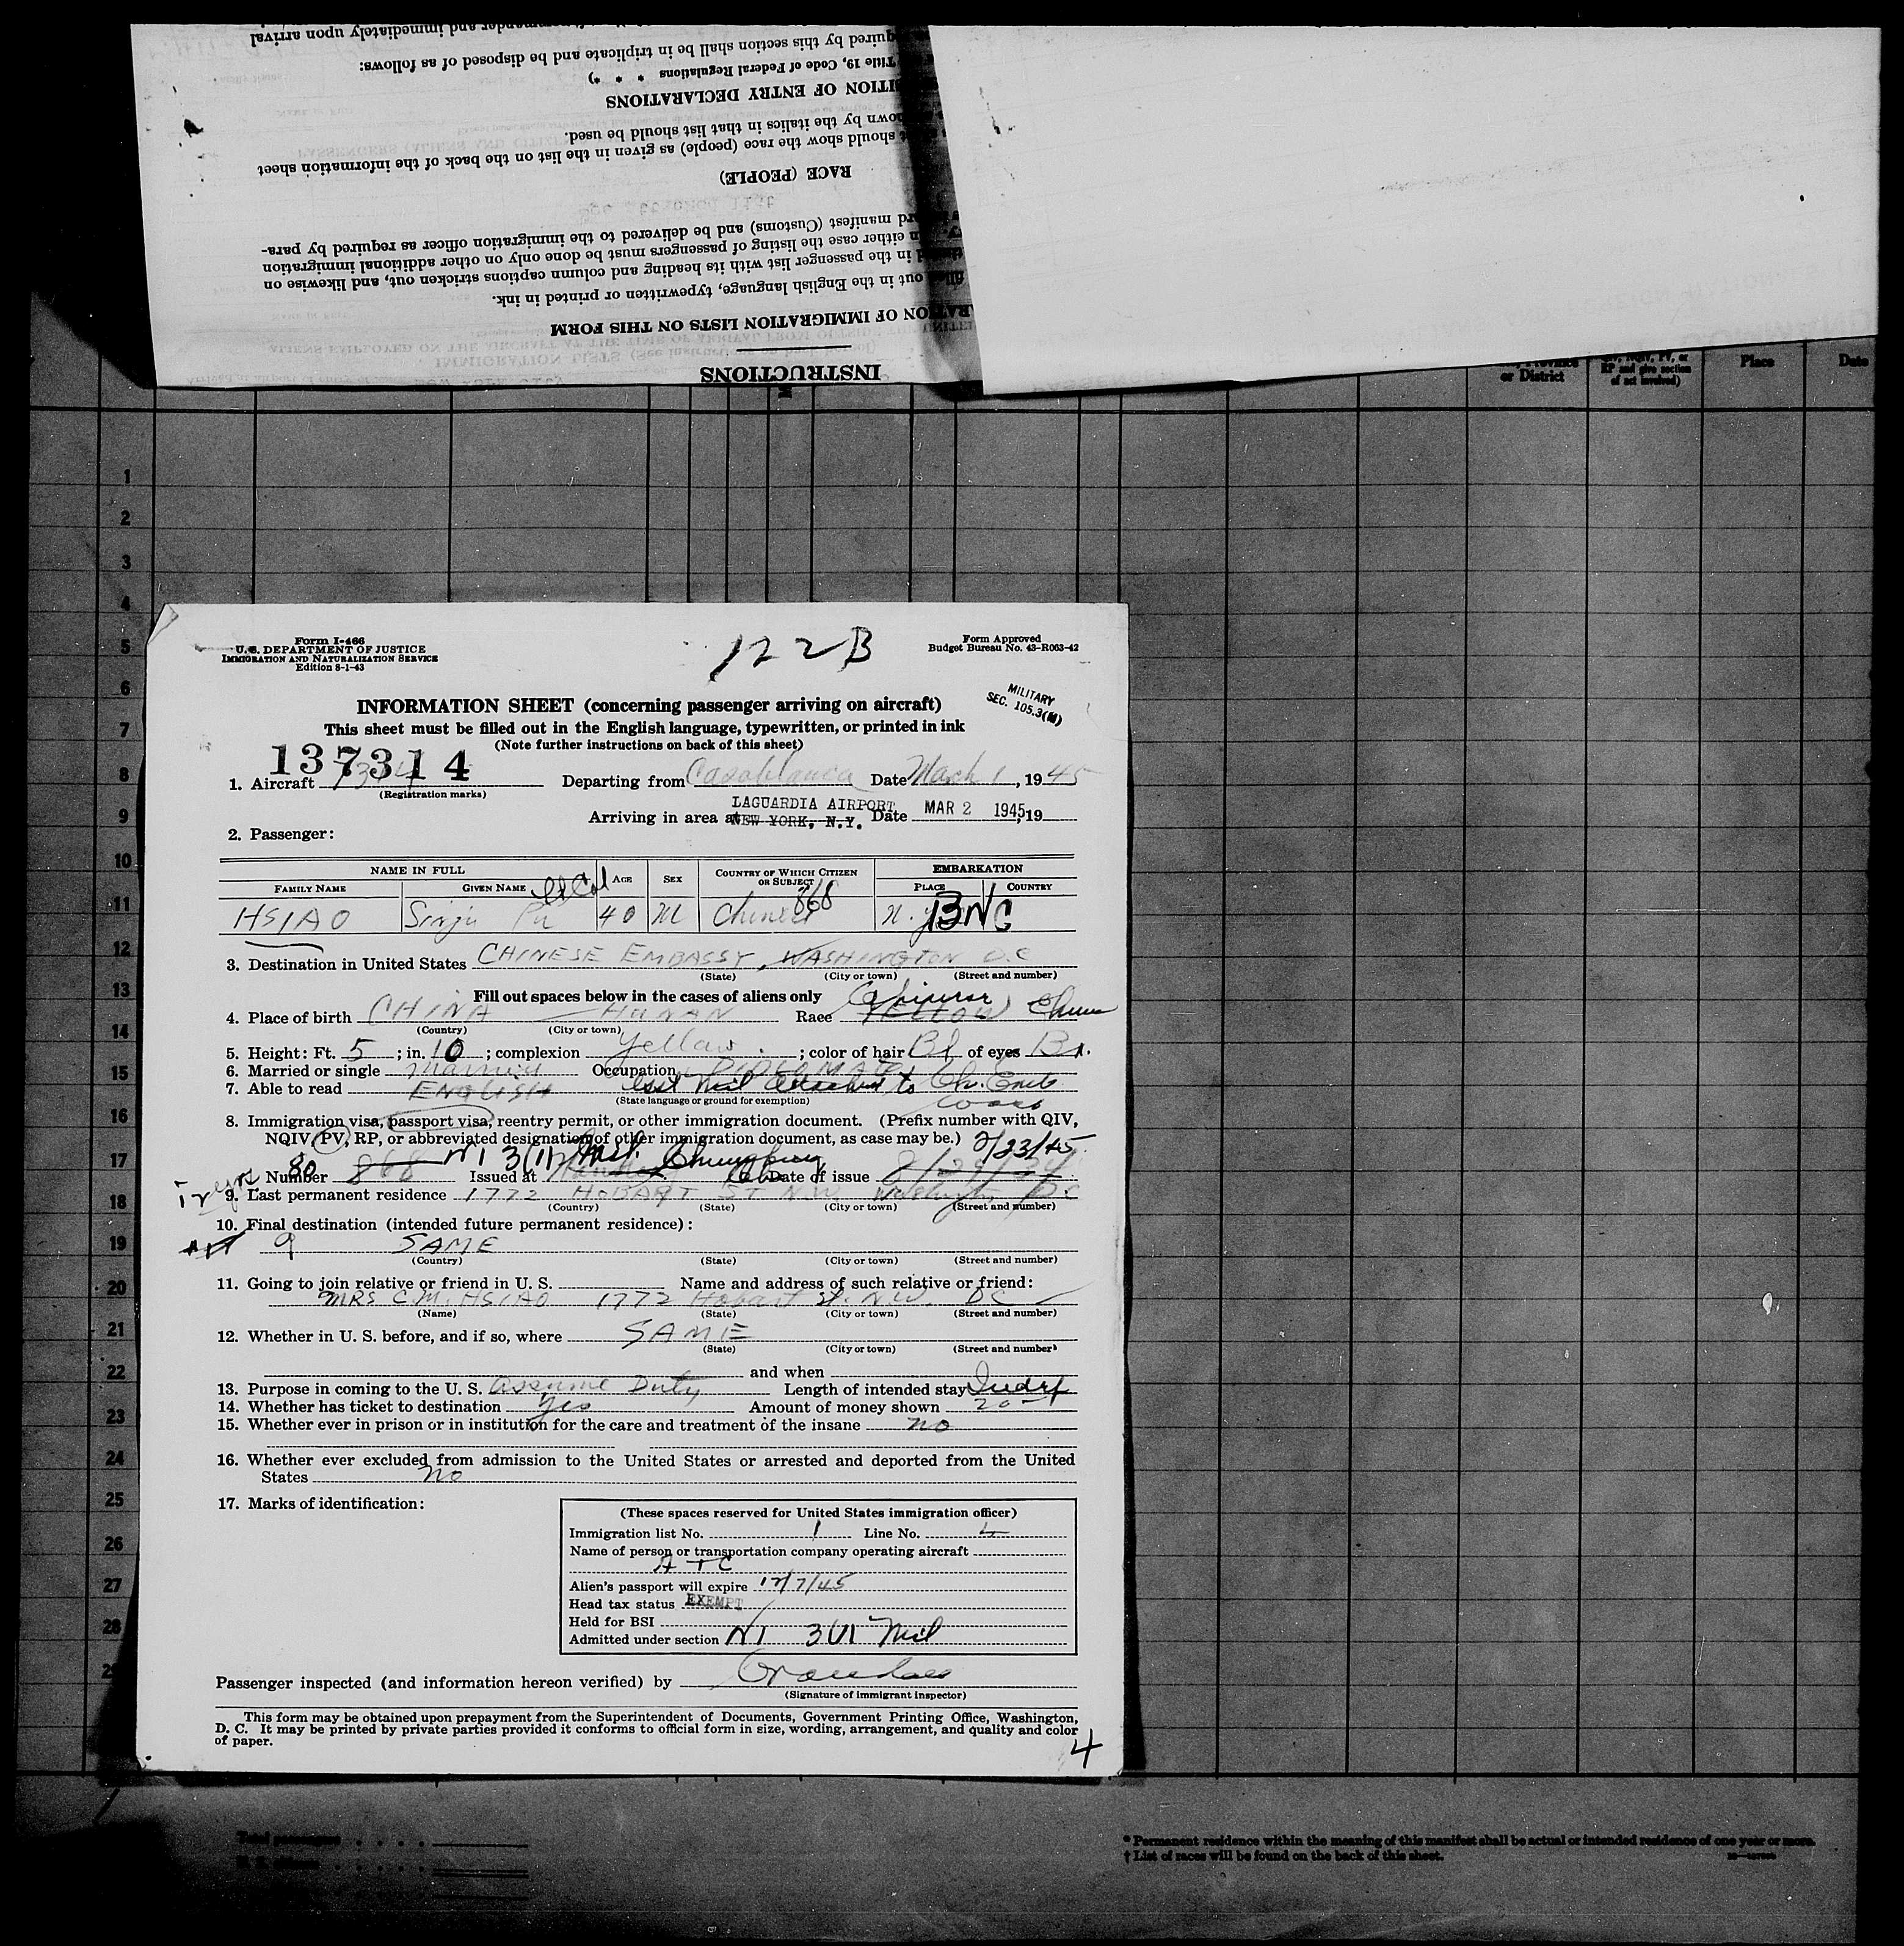 and immediately upon arrival
quired by this section shall be in triplicate and be disposed of as follows:
Title 19, Code of Federal Regulations * * *)
ITION OF ENTRY DECLARATIONS
own by the italics in that list should be used.
should show the race (people) as given in the list on the back of the information sheet
RACE (PEOPLE)
rd manifest (Customs) and be delivered to the immigration officer as required by para-
in either case the listing of passengers must be done only on other additional immigration
in the passenger list with its heading and column captions stricken out, and likewise on
out in the English language, typewritten or printed in ink.
RATION OF IMMIGRATION LISTS ON THIS FORM
INSTRUCTIONS
or District
RP and give section
of act involved)
Place
Date
1
2
3
4
5
6
7
8
9
10
11
12
13
14
15
16
17
18
19
20
21
22
23
24
25
26
27
28
Form I-466
U.S. DEPARTMENT OF JUSTICE
IMMIGRATION AND NATURALIZATION SERVICE
Edition 8-1-43
122B
Form Approved
Budget Bureau No. 43-R063-42
MILITARY
SEC. 105.3(M)
INFORMATION SHEET (concerning passenger arriving on aircraft)
This sheet must be filled out in the English language, typewritten, or printed in ink
(Note further instructions on back of this sheet)
137314
1. Aircraft Departing from Casablanca Date March 1, 1945
(Registration marks)
LAGUARDIA AIRPORT
Arriving in area at NEW YORK, N.Y. Date MAR 2 1945, 19
2. Passenger:
NAME IN FULL AGE SEX COUNTRY OF WHICH CITIZEN OR SUBJECT EMBARKATION
FAMILY NAME GIVEN NAME PLACE COUNTRY
Lt Col 868
HSIAO Sinju Pu 40 M Chinese N.Y. BNC
3. Destination in United States CHINESE EMBASSY, WASHINGTON D.C
(State) (City or town) (Street and number)
Fill out spaces below in the cases of aliens only Chinese
4. Place of birth CHINA — HUNAN Race YELLOW
(Country) (City or town)
5. Height: Ft. 5; in. 10; complexion Yellow; color of hair Bl of eyes Br.
6. Married or single Married Occupation DIPLOMAT
7. Able to read ENGLISH Asst Mil Attache to Ch. Emb
(State language or ground for exemption)
8. Immigration visa, passport visa, reentry permit, or other immigration document. (Prefix number with QIV,
NQIV, PV, RP, or abbreviated designation of other immigration document, as case may be.) 2/23/45
80 Number 868 Issued at Chungking Date of issue
9. Last permanent residence 1772 HOBART ST N.W. Washington DC
(Country) (State) (City or town) (Street and number)
10. Final destination (intended future permanent residence):
9 SAME
(Country) (State) (City or town) (Street and number)
11. Going to join relative or friend in U. S. Name and address of such relative or friend:
MRS C.M. HSIAO 1772 Hobart St. N.W. DC
(Name) (State) (City or town) (Street and number)
12. Whether in U. S. before, and if so, where SAME
(State) (City or town) (Street and number)
and when
13. Purpose in coming to the U. S. Assume Duty Length of intended stay Indef
14. Whether has ticket to destination Yes Amount of money shown 20—
15. Whether ever in prison or in institution for the care and treatment of the insane no
16. Whether ever excluded from admission to the United States or arrested and deported from the United
States no
17. Marks of identification:
(These spaces reserved for United States immigration officer)
Immigration list No. 1 Line No. 4
Name of person or transportation company operating aircraft
ATC
Alien's passport will expire 12/7/45
Head tax status EXEMPT
Held for BSI
Admitted under section N1 3(1) Mil
Passenger inspected (and information hereon verified) by
(Signature of immigrant inspector)
This form may be obtained upon prepayment from the Superintendent of Documents, Government Printing Office, Washington,
D. C. It may be printed by private parties provided it conforms to official form in size, wording, arrangement, and quality and color
of paper.
4
Total passengers
* Permanent residence within the meaning of this manifest shall be actual or intended residence of one year or more.
† List of races will be found on the back of this sheet.